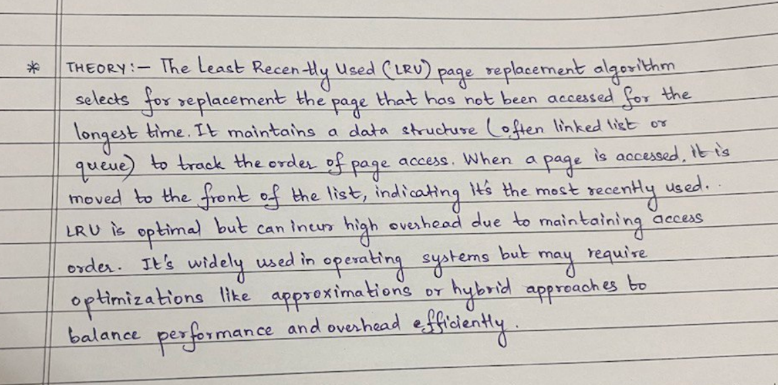 * THEORY:- The Least Recently Used (LRU) page replacement algorithm
selects for replacement the page that has not been accessed for the
longest time. It maintains a data structure (often linked list or
queue) to track the order of page access. When a page is accessed, it is
moved to the front of the list, indicating it's the most recently used.
LRU is optimal but can incur high overhead due to maintaining access
order. It's widely used in operating systems but may require
optimizations like approximations or hybrid approaches to
balance performance and overhead efficiently.